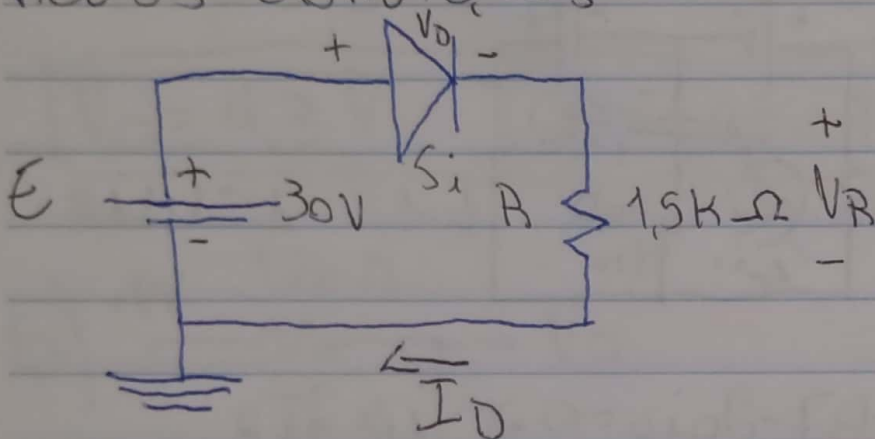 + VD -
Si
E + 30V -
R 1,5K Ω
+ VR -
ID